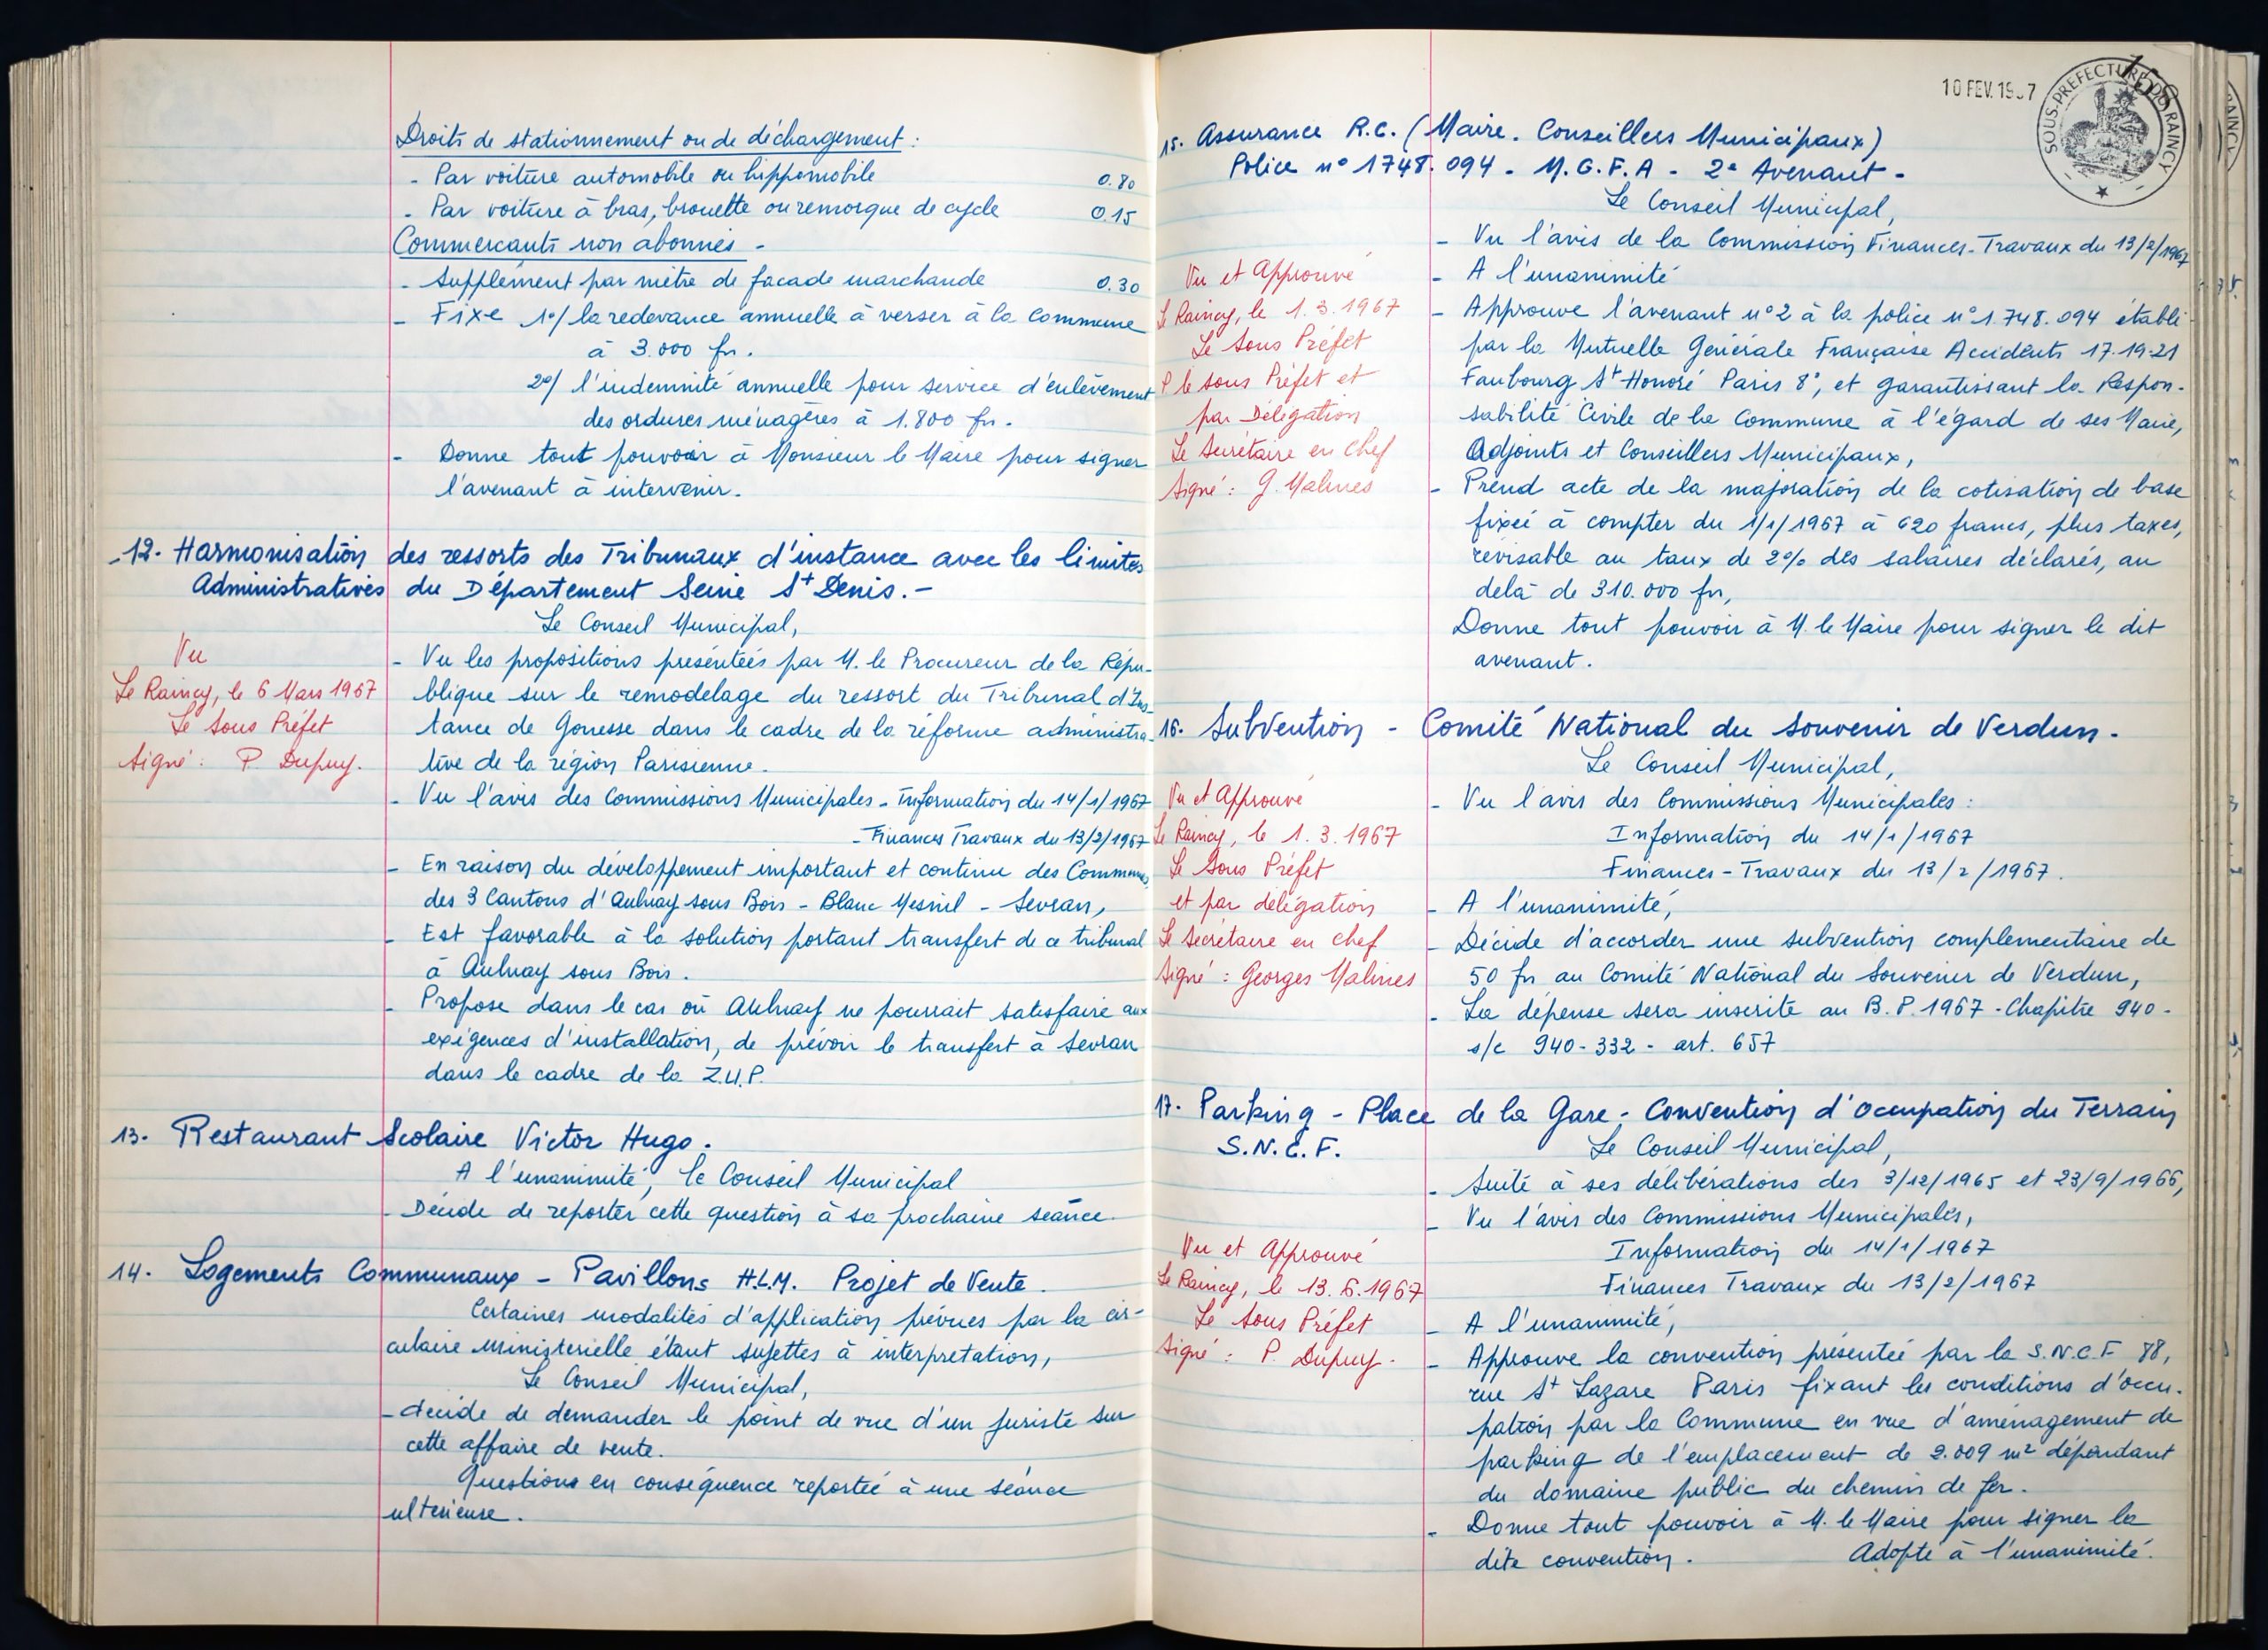 Droits de stationnement ou de déchargement :
- Par voiture automobile ou hippomobile 0.80
- Par voiture à bras, brouette ou remorque de cycle 0.15
Commercants non abonnés -
- Supplément par mètre de facade marchande 0.30
- Fixe 1°/ la redevance annuelle à verser à la Commune
à 3.000 frs.
2°/ l'indemnité annuelle pour service d'enlèvement
des ordures ménagères à 1.800 frs.
- Donne tout pouvoir à Monsieur le Maire pour signer
l'avenant à intervenir.
12. Harmonisation des ressorts des Tribunaux d'instance avec les limites
Administratives du Département Seine St Denis.-
Le Conseil Municipal,
Vu
Le Raincy, le 6 Mars 1967
Le Sous Préfet
Signé : P. Dupuy.
- Vu les propositions présentées par M. le Procureur de la Répu-
blique sur le remodelage du ressort du Tribunal d'Ins-
tance de Gonesse dans le cadre de la réforme administra-
tive de la région Parisienne.
- Vu l'avis des Commissions Municipales - Information du 14/1/1967
- Finances Travaux du 13/2/1967
- En raison du développement important et continu des Communes
des 3 Cantons d'Aulnay sous Bois - Blanc Mesnil - Sevran,
- Est favorable à la solution portant transfert de ce tribunal
à Aulnay sous Bois.
- Propose dans le cas où Aulnay ne pourrait satisfaire aux
exigences d'installation, de prévoir le transfert à Sevran
dans le cadre de la Z.U.P.
13. Restaurant Scolaire Victor Hugo.
A l'unanimité, le Conseil Municipal
- Décide de reporter cette question à sa prochaine séance.
14. Logements Communaux - Pavillons H.L.M. Projet de Vente.
Certaines modalités d'application prévues par la cir-
culaire ministerielle étant sujettes à interprétation,
Le Conseil Municipal,
- décide de demander le point de vue d'un juriste sur
cette affaire de vente.
Questions en conséquence reportée à une séance
ulterieure.
10 FEV. 19 7
SOUS-PREFECTURE DU RAINCY
15. Assurance R.C. (Maire. Conseillers Municipaux)
Police n° 1748.094 - M.G.F.A - 2e Avenant -
Le Conseil Municipal,
- Vu l'avis de la Commission Finances-Travaux du 13/2/1967
- A l'unanimité
Vu et Approuvé
Le Raincy, le 1.3.1967
Le Sous Préfet
P le Sous Préfet et
par Délégation
Le Secrétaire en Chef
Signé : G. Malines
- Approuve l'avenant n°2 à la police n°1.748.094 établi
par la Mutuelle Générale Française Accidents 17.19.21
Faubourg St Honoré Paris 8°, et garantissant la Respon-
sabilité Civile de la Commune à l'égard de ses Maire,
Adjoints et Conseillers Municipaux,
- Prend acte de la majoration de la cotisation de base
fixée à compter du 1/1/1967 à 620 francs, plus taxes,
révisable au taux de 2% des salaires déclarés, au
delà de 310.000 frs,
Donne tout pouvoir à M. le Maire pour signer le dit
avenant.
16. Subvention - Comité National du Souvenir de Verdun.
Le Conseil Municipal,
Vu et Approuvé
Le Raincy, le 1.3.1967
Le Sous Préfet
et par délégation
Le Secrétaire en chef
Signé : Georges Malines
- Vu l'avis des Commissions Municipales :
Information du 14/1/1967
Finances-Travaux du 13/2/1967.
- A l'unanimité,
- Décide d'accorder une subvention complémentaire de
50 frs au Comité National du Souvenir de Verdun,
- La dépense sera inscrite au B.P. 1967 - Chapitre 940 -
s/c 940-332 - art. 657
17. Parking - Place de la Gare - Convention d'Occupation du Terrain
S.N.C.F.
Le Conseil Municipal,
- Suite à ses délibérations des 3/12/1965 et 23/9/1966,
- Vu l'avis des Commissions Municipales,
Information du 14/1/1967
Finances Travaux du 13/2/1967
Vu et Approuvé
Le Raincy, le 13.6.1967
Le Sous Préfet
Signé : P. Dupuy.
- A l'unanimité,
- Approuve la convention présentée par la S.N.C.F 88,
rue St Lazare Paris fixant les conditions d'occu-
pation par la Commune en vue d'aménagement de
parking de l'emplacement de 2.009 m² dépendant
du domaine public du chemin de fer.
- Donne tout pouvoir à M. le Maire pour signer la
dite convention. Adopté à l'unanimité.